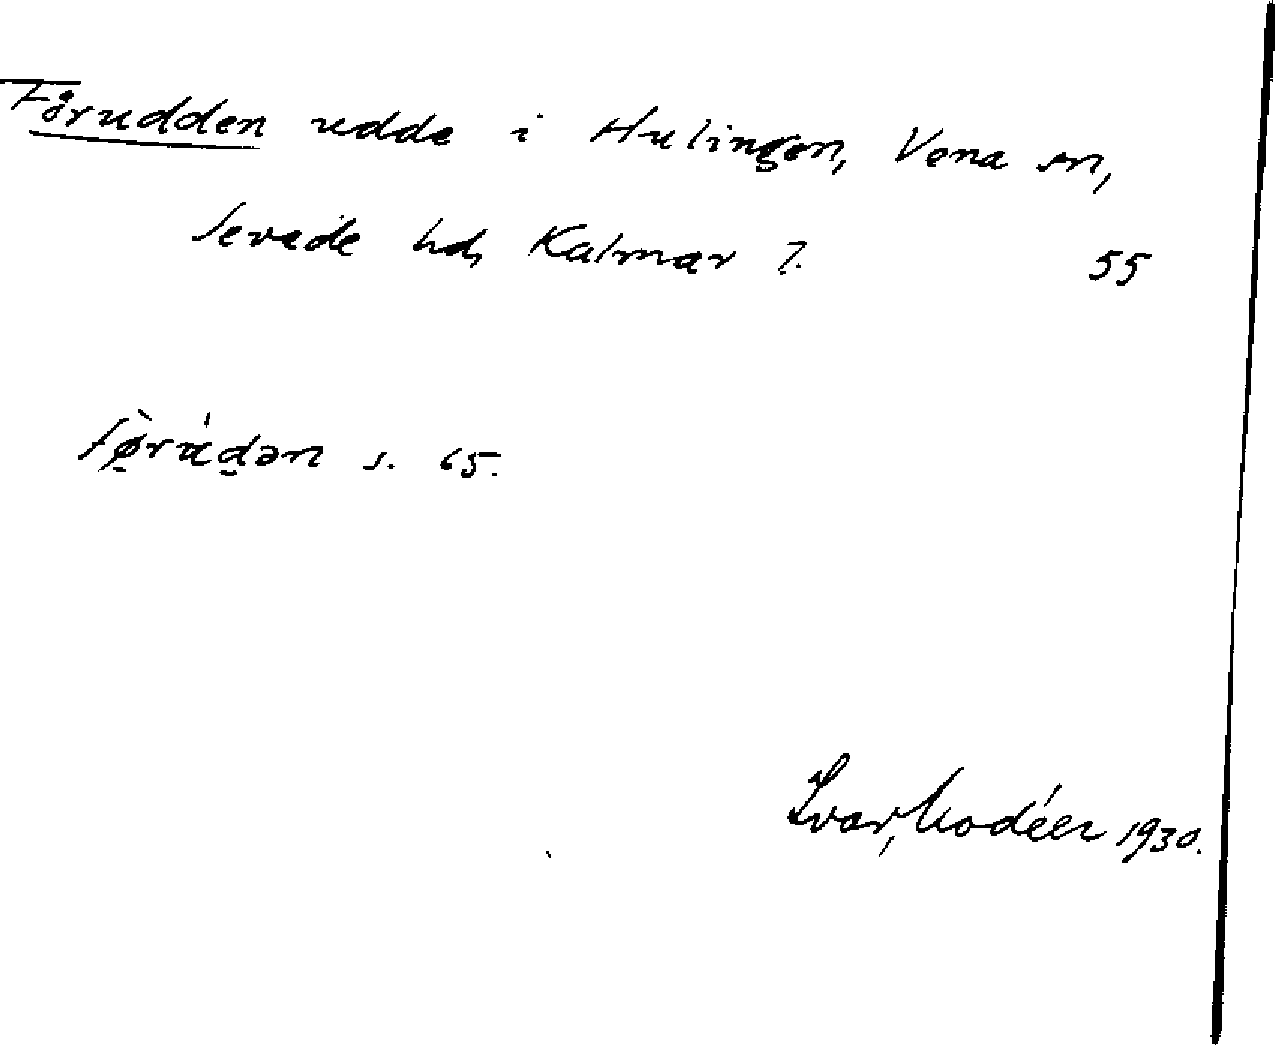 Förudden udde i Hulingen, Vena sn,
Sevede hd, Kalmar l. 55
fø̀rúdən s. 65.
Ivar Modéer 1930.